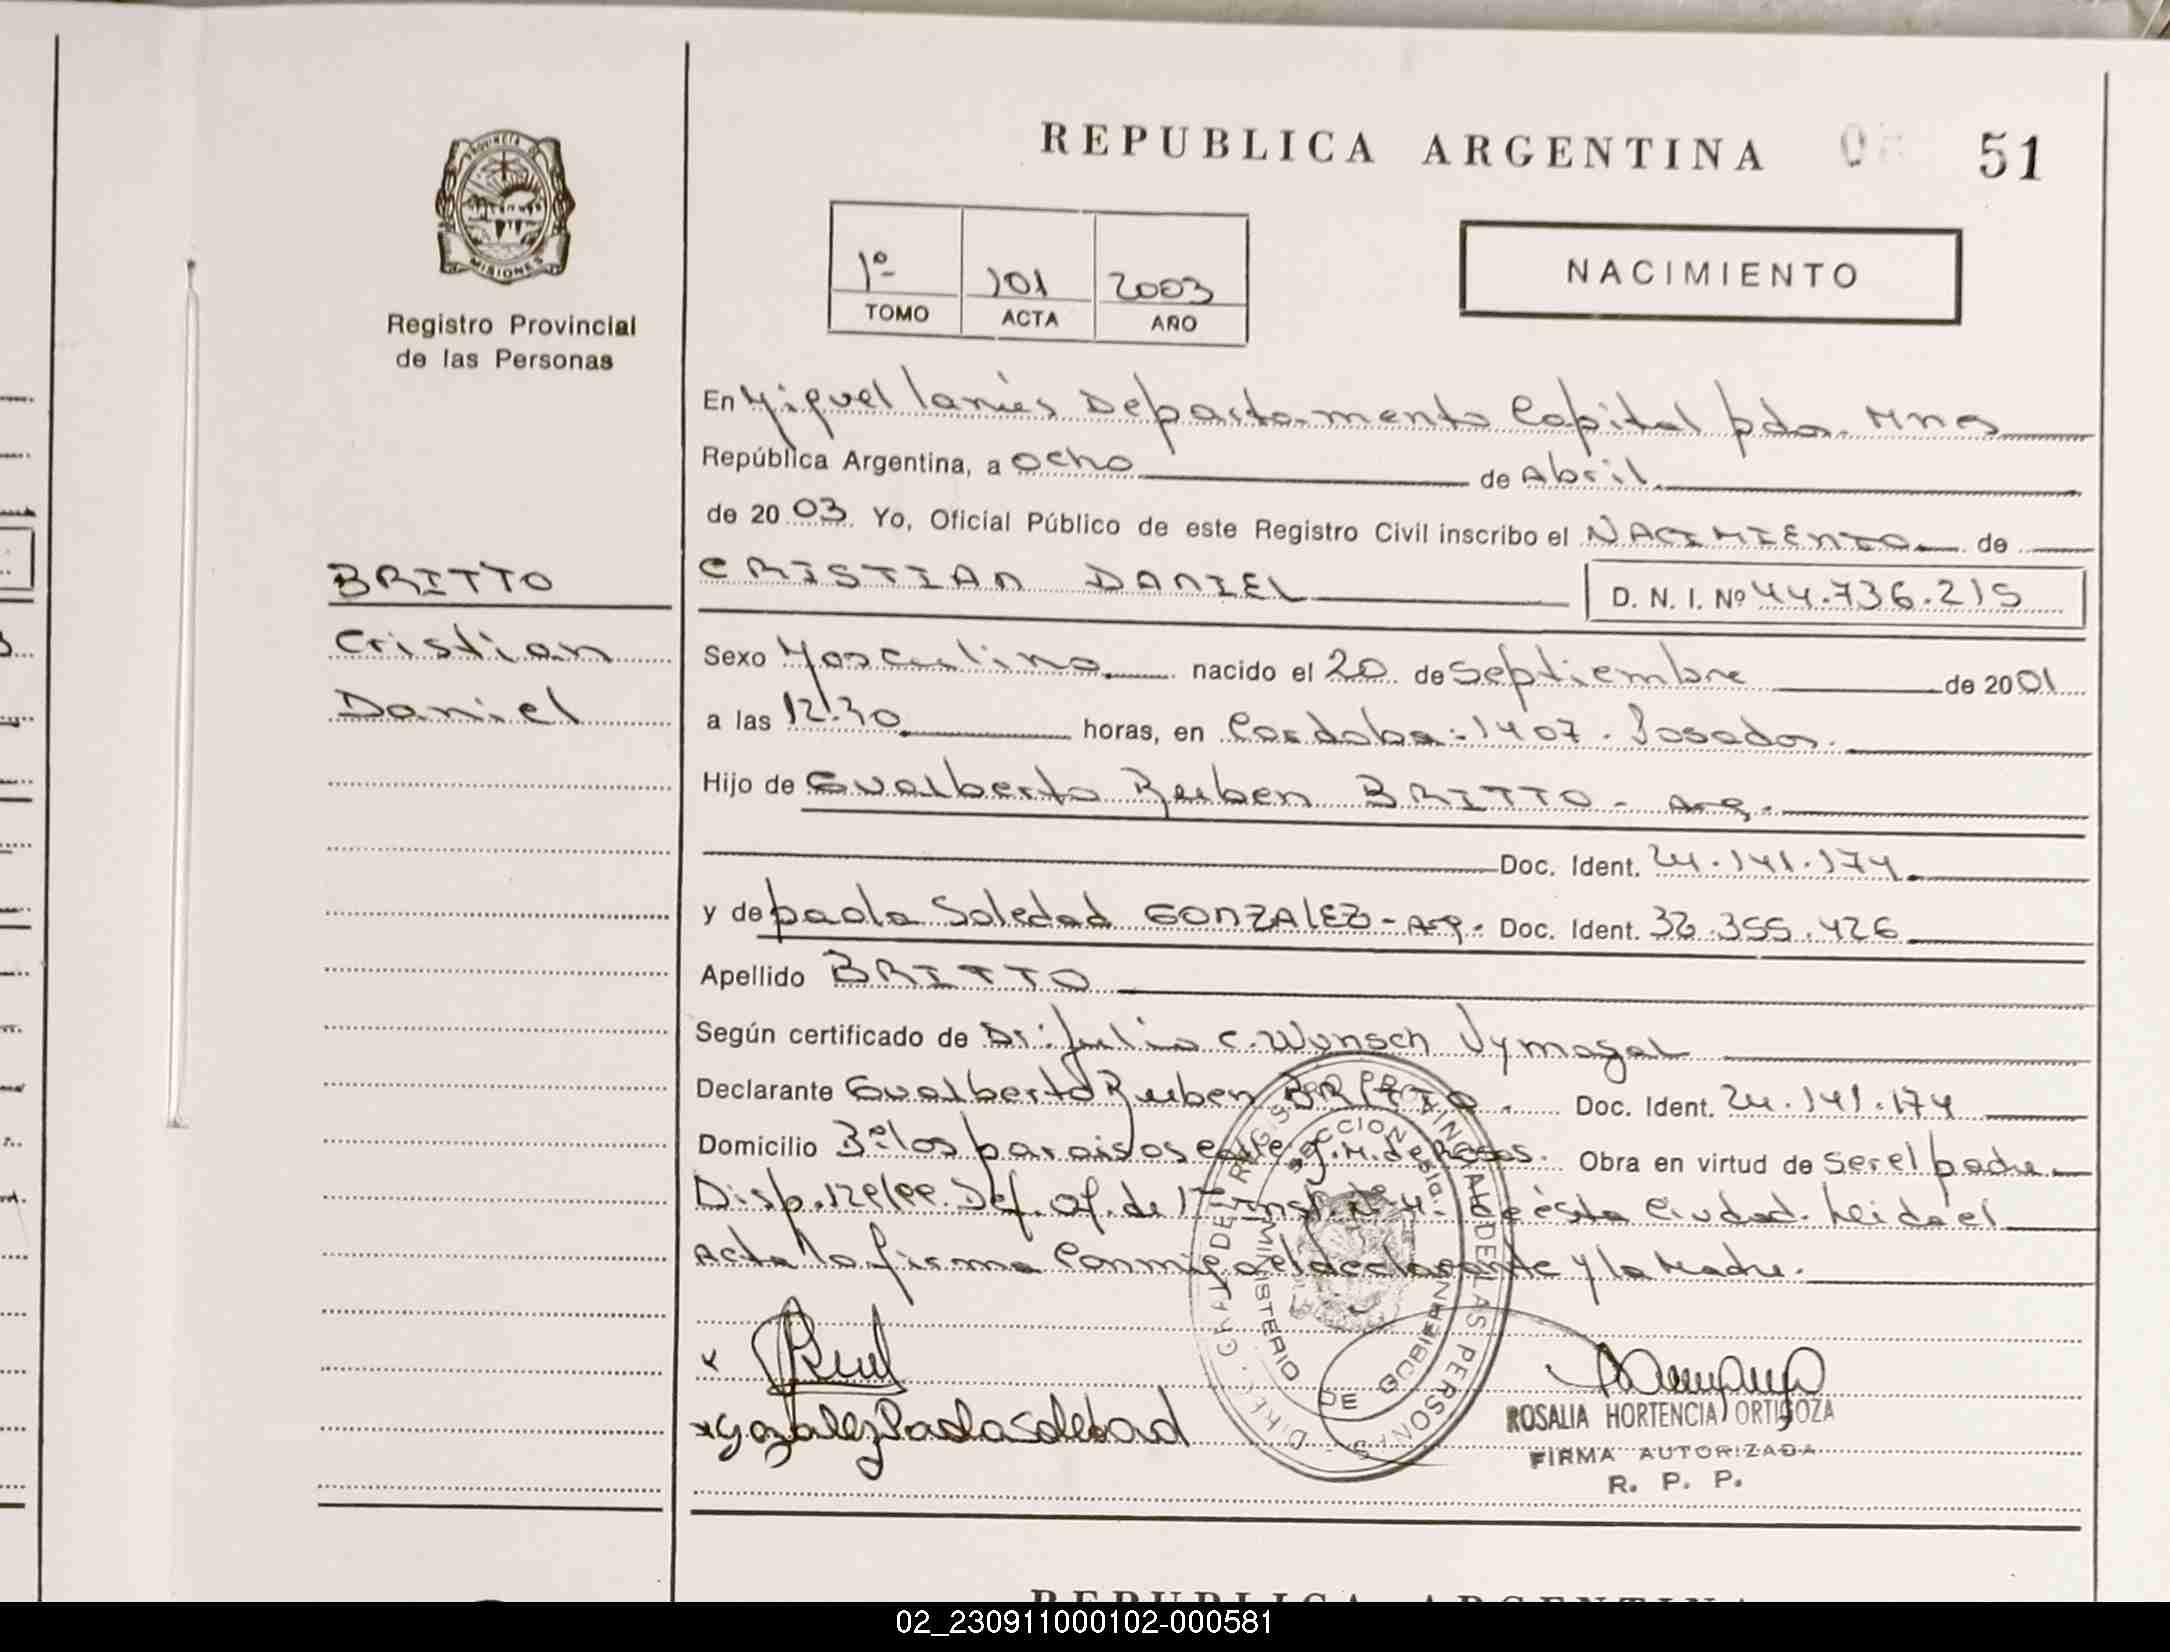 REPUBLICA ARGENTINA 51
PROVINCIA DE
MISIONES
Registro Provincial
de las Personas
1º 101 2003
TOMO ACTA AÑO
NACIMIENTO
En Miguel Lanús Departamento Capital pda. Mnes
República Argentina, a ocho de Abril
de 2003. Yo, Oficial Público de este Registro Civil inscribo el NACIMIENTO de
BRITTO
Cristian
Daniel
CRISTIAN DANIEL D. N. I. Nº 44.736.215
Sexo Masculino nacido el 20 de septiembre de 2001
a las 12:30 horas, en Cordoba: 1407. Posadas.
Hijo de Gualberto Ruben BRITTO - Arg.
Doc. Ident. 24.141.174
y de paola Soledad GONZALEZ - Arg. Doc. Ident. 32.355.426
Apellido BRITTO
Según certificado de Dr. Julio C. Wunsch Vymazal
Declarante Gualberto Ruben BRITTO. Doc. Ident. 24.141.174
Domicilio Bº los paraisos calle J.M. de Rosas. Obra en virtud de ser el padre
Disp. Def. Of. de 1ª Inst. Nº 4. de ésta Ciudad. Leida el
Acta la firma conmigo el declarante y la Madre.
x
x Gozalez Paola Soledad
DIREC. GRAL DEL REGISTRO PROVINCIAL DE LAS PERSONAS
MINISTERIO DE GOBIERNO
ROSALIA HORTENCIA ORTIGOZA
FIRMA AUTORIZADA
R. P. P.
REPUBLICA ARGENTINA
02_230911000102-000581